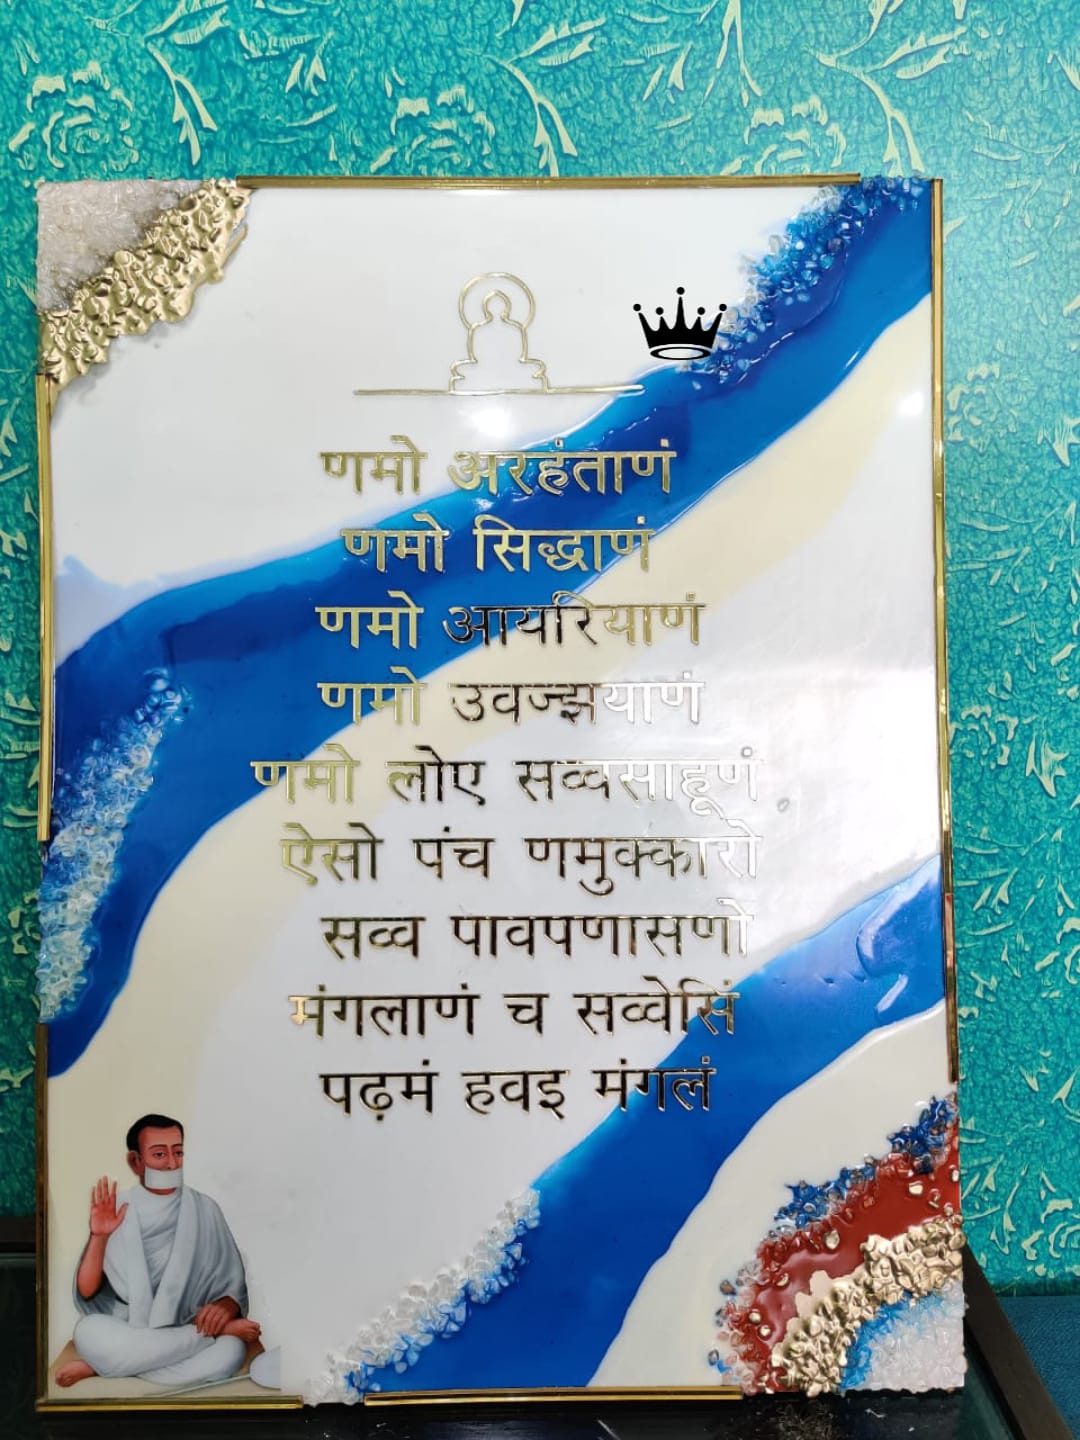 णमो अरहंताणं
णमो सिद्धाणं
णमो आयरियाणं
णमो उवज्झयाणं
णमो लोए सव्वसाहूणं
ऐसो पंच णमुक्कारो
सव्व पावपणासणो
मंगलाणं च सव्वेसिं
पढ़मं हवइ मंगलं